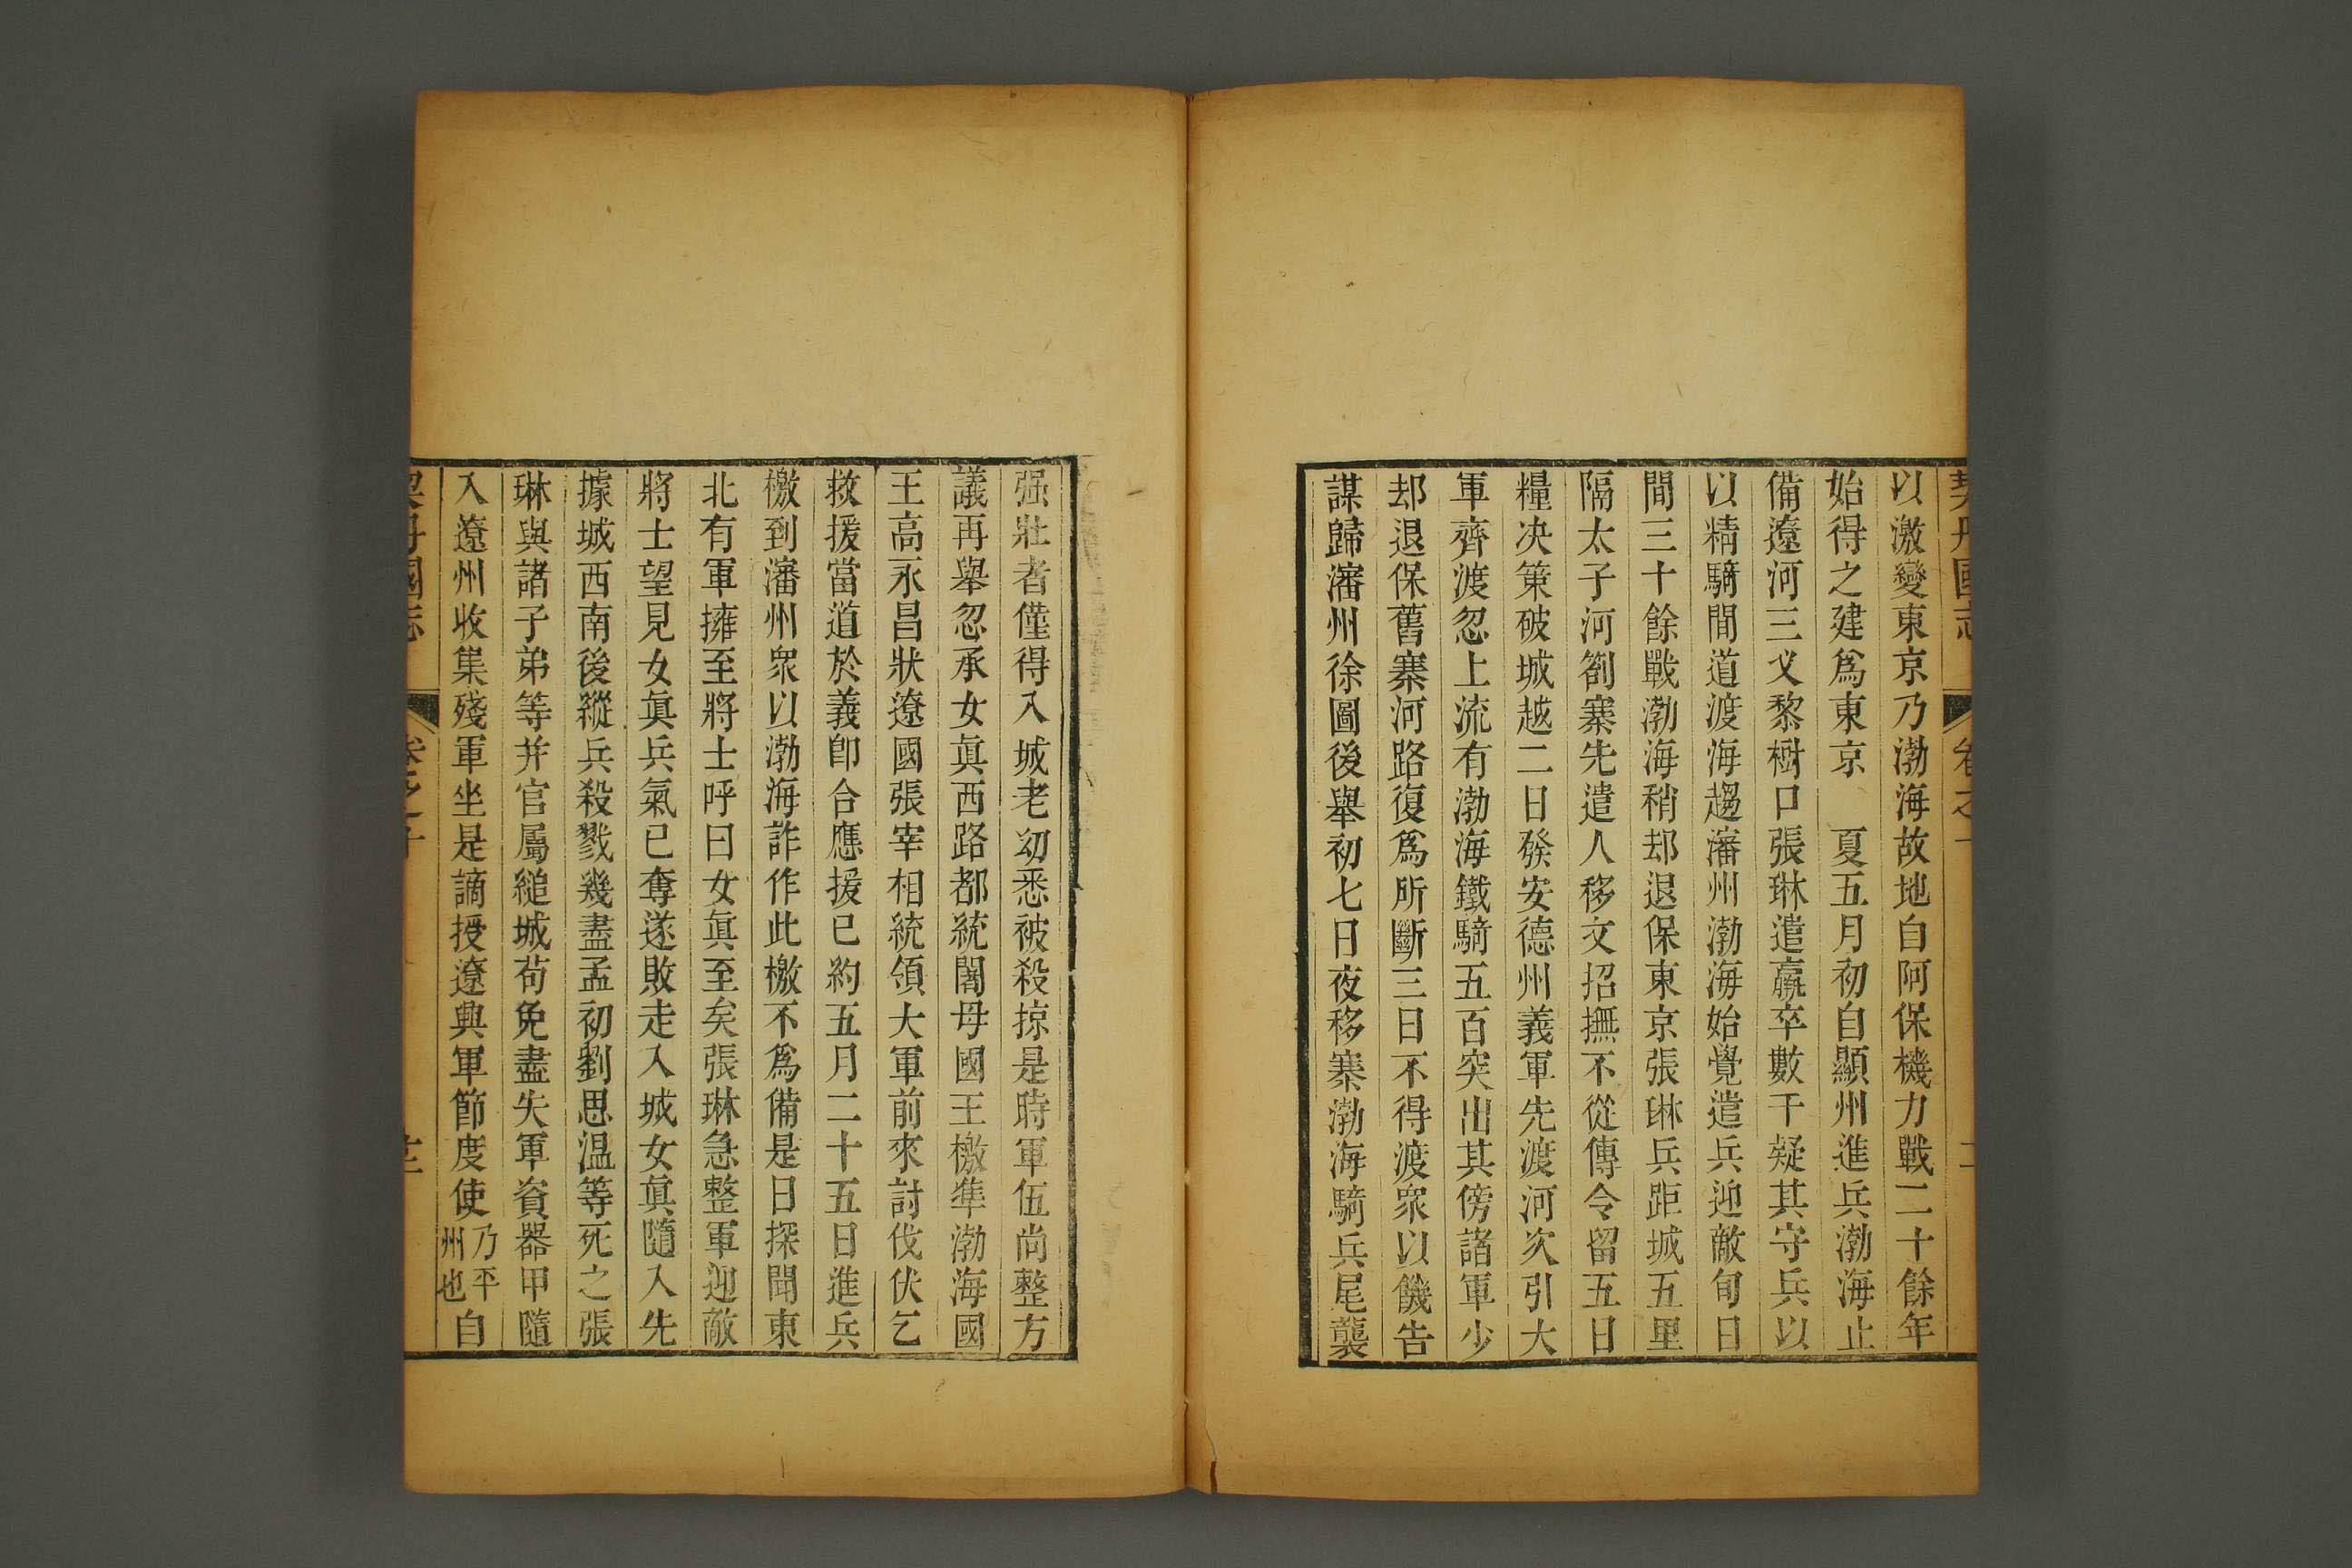 契丹國志 卷之十
以激變東京乃渤海故地自阿保機力戰二十餘年
始得之建爲東京　夏五月初自顯州進兵渤海止
備遼河三叉黎樹口張琳遣羸卒數千疑其守兵以
以精騎間道渡海趨瀋州渤海始覺遣兵迎敵旬日
間三十餘戰渤海稍却退保東京張琳兵距城五里
隔太子河劄寨先遣人移文招撫不從傳令留五日
糧决策破城越二日發安德州義軍先渡河次引大
軍齊渡忽上流有渤海鐵騎五百突出其傍諸軍少
却退保舊寨河路復爲所斷三日不得渡衆以饑告
謀歸瀋州徐圖後舉初七日夜移寨渤海騎兵尾襲
强壯者僅得入城老幼悉被殺掠是時軍伍尚整方
議再舉忽承女眞西路都統闍母國王檄準渤海國
王高永昌狀遼國張宰相統領大軍前來討伐伏乞
救援當道於義卽合應援已約五月二十五日進兵
檄到瀋州衆以渤海詐作此檄不爲備是日探聞東
北有軍擁至將士呼曰女眞至矣張琳急整軍迎敵
將士望見女眞兵氣已奪遂敗走入城女眞隨入先
據城西南後縱兵殺戮幾盡孟初劉思温等死之張
琳與諸子弟等并官屬縋城苟免盡失軍資器甲隨
入遼州收集殘軍坐是謫授遼興軍節度使乃平州也自
契丹國志 卷之十